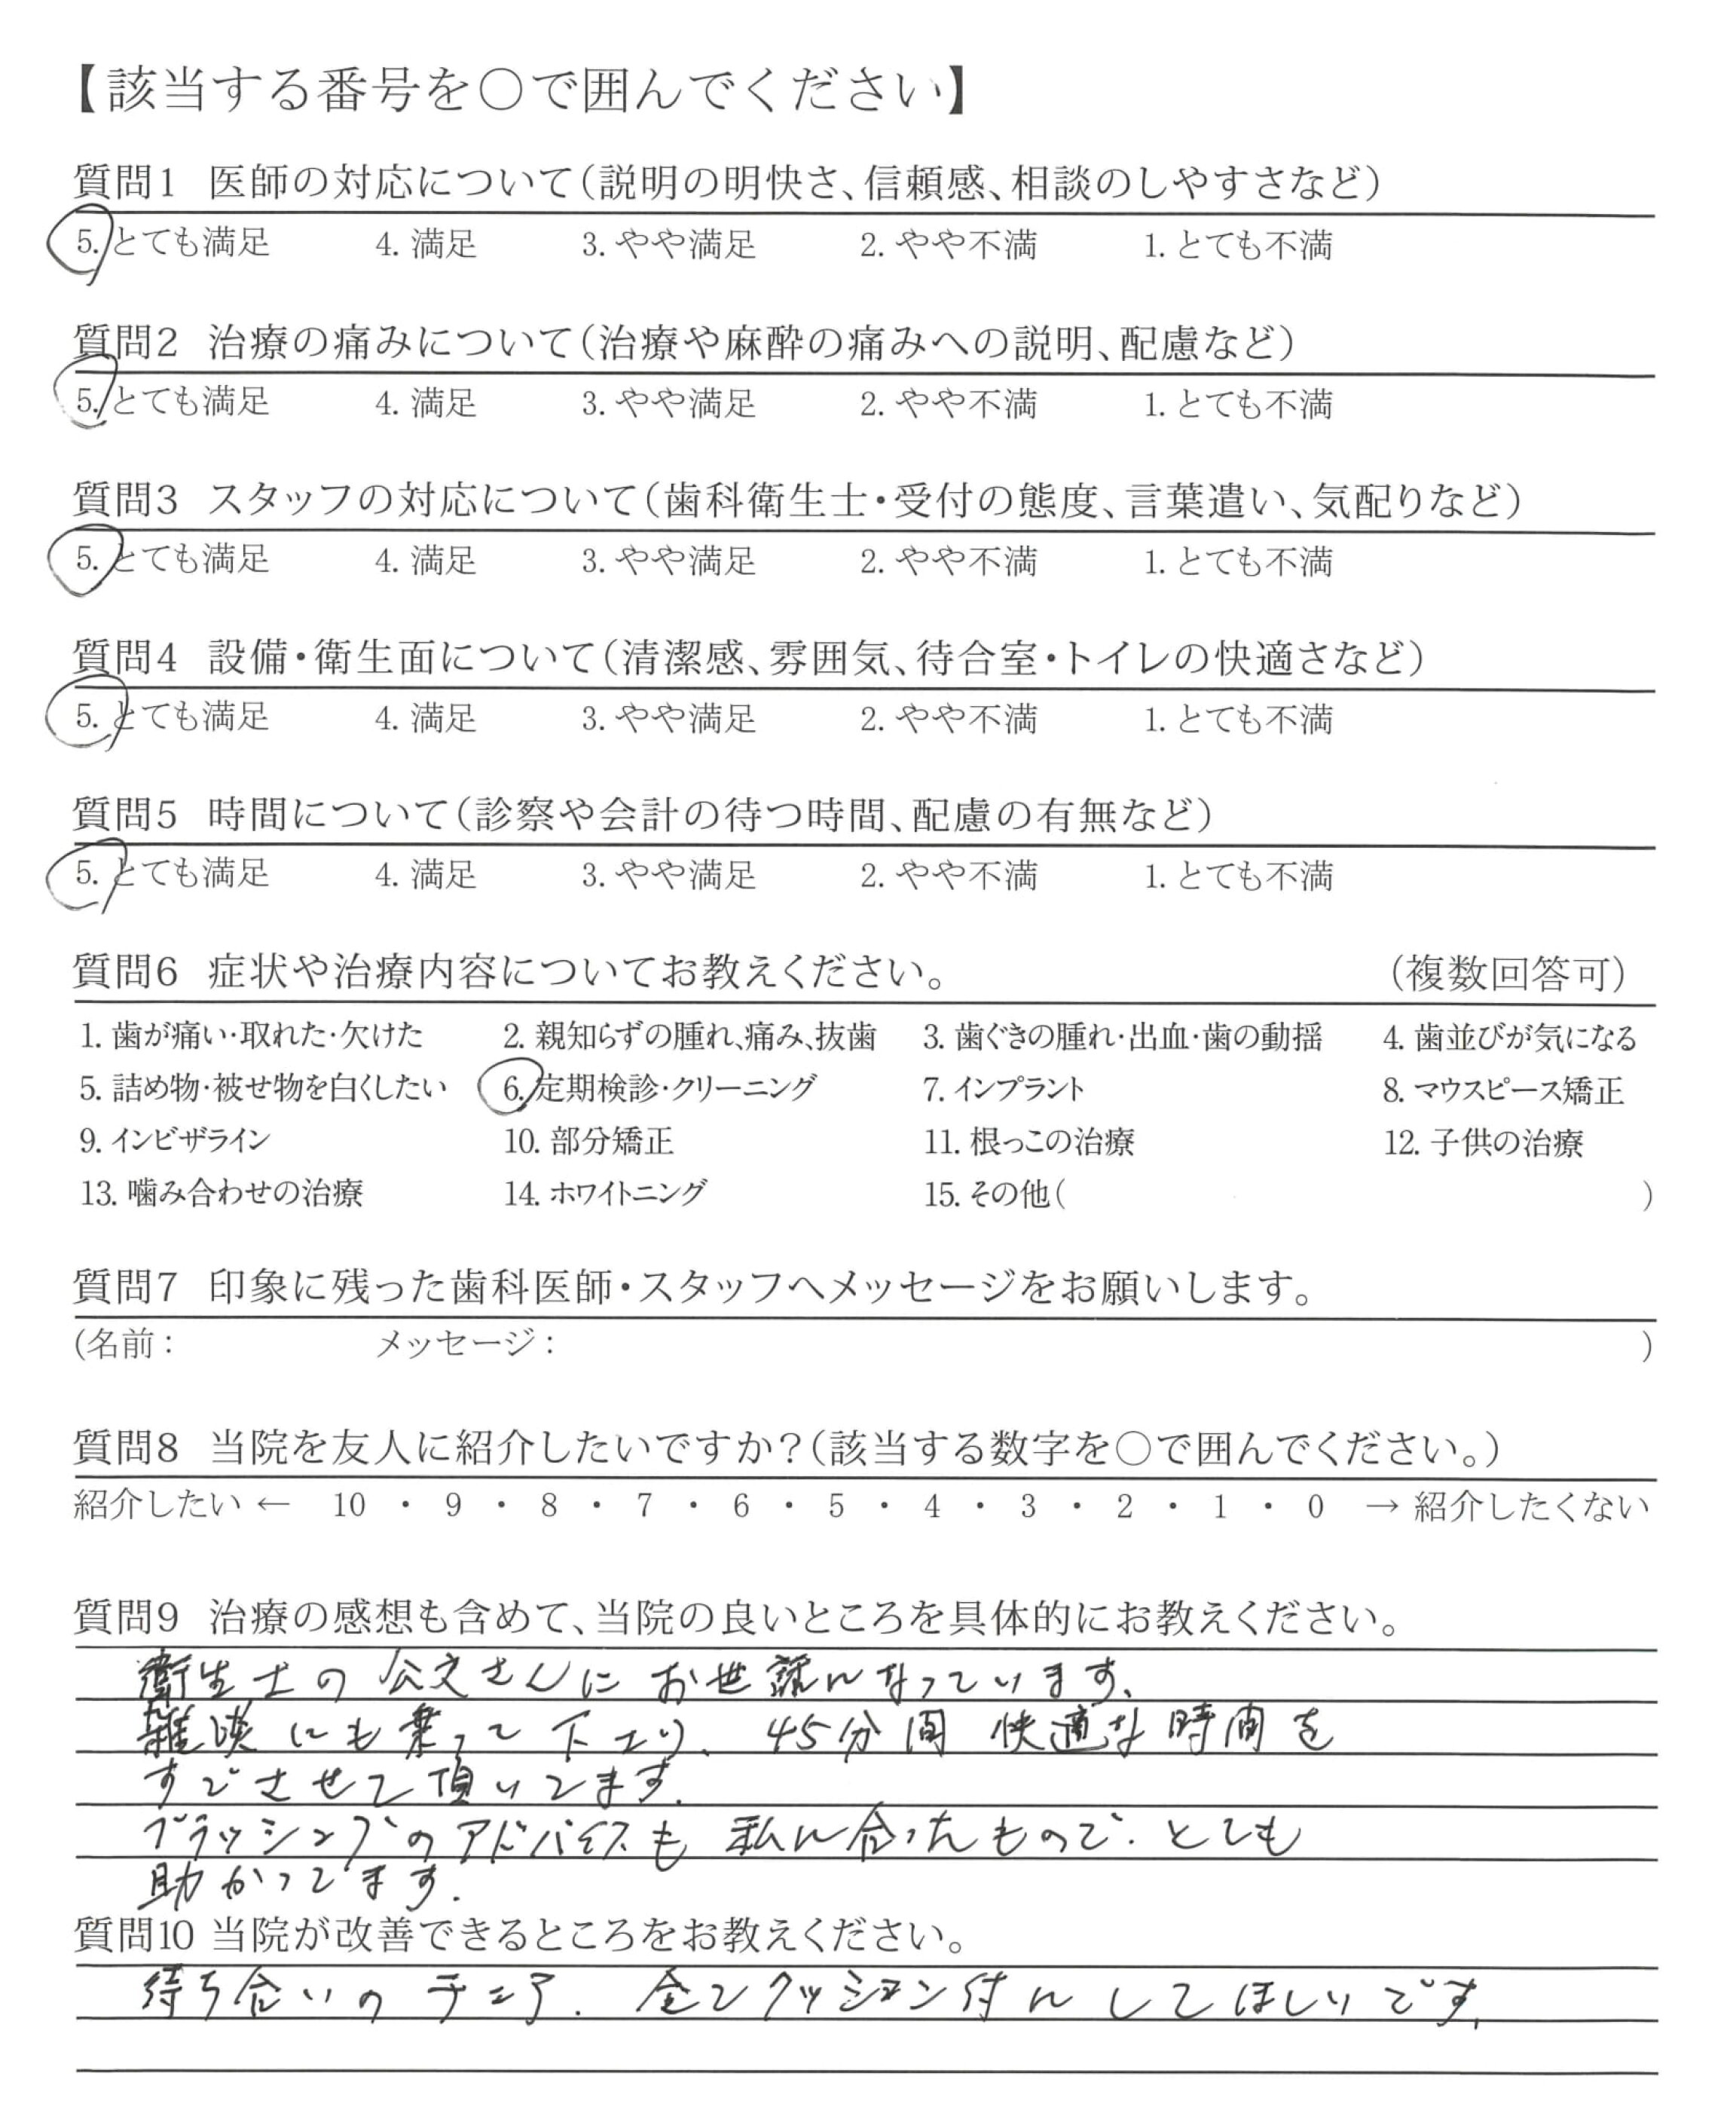 【該当する番号を〇で囲んでください】
質問1 医師の対応について(説明の明快さ、信頼感、相談のしやすさなど)
5. とても満足 4. 満足 3. やや満足 2. やや不満 1. とても不満
質問2 治療の痛みについて(治療や麻酔の痛みへの説明、配慮など)
5. とても満足 4. 満足 3. やや満足 2. やや不満 1. とても不満
質問3 スタッフの対応について(歯科衛生士・受付の態度、言葉遣い、気配りなど)
5. とても満足 4. 満足 3. やや満足 2. やや不満 1. とても不満
質問4 設備・衛生面について(清潔感、雰囲気、待合室・トイレの快適さなど)
5. とても満足 4. 満足 3. やや満足 2. やや不満 1. とても不満
質問5 時間について(診察や会計の待つ時間、配慮の有無など)
5. とても満足 4. 満足 3. やや満足 2. やや不満 1. とても不満
質問6 症状や治療内容についてお教えください。 (複数回答可)
1. 歯が痛い・取れた・欠けた 2. 親知らずの腫れ、痛み、抜歯 3. 歯ぐきの腫れ・出血・歯の動揺 4. 歯並びが気になる
5. 詰め物・被せ物を白くしたい 6. 定期検診・クリーニング 7. インプラント 8. マウスピース矯正
9. インビザライン 10. 部分矯正 11. 根っこの治療 12. 子供の治療
13. 噛み合わせの治療 14. ホワイトニング 15. その他( )
質問7 印象に残った歯科医師・スタッフへメッセージをお願いします。
(名前: メッセージ: )
質問8 当院を友人に紹介したいですか?(該当する数字を〇で囲んでください。)
紹介したい ← 10 ・ 9 ・ 8 ・ 7 ・ 6 ・ 5 ・ 4 ・ 3 ・ 2 ・ 1 ・ 0 → 紹介したくない
質問9 治療の感想も含めて、当院の良いところを具体的にお教えください。
衛生士の公文さんにお世話になっています。
雑談にも乗って下さり、45分間 快適な時間を
すごさせて頂いてます。
ブラッシングのアドバイスも 私に合ったもので、とても
助かってます。
質問10 当院が改善できるところをお教えください。
待ち合いのチェア、全てクッション付にしてほしいです。